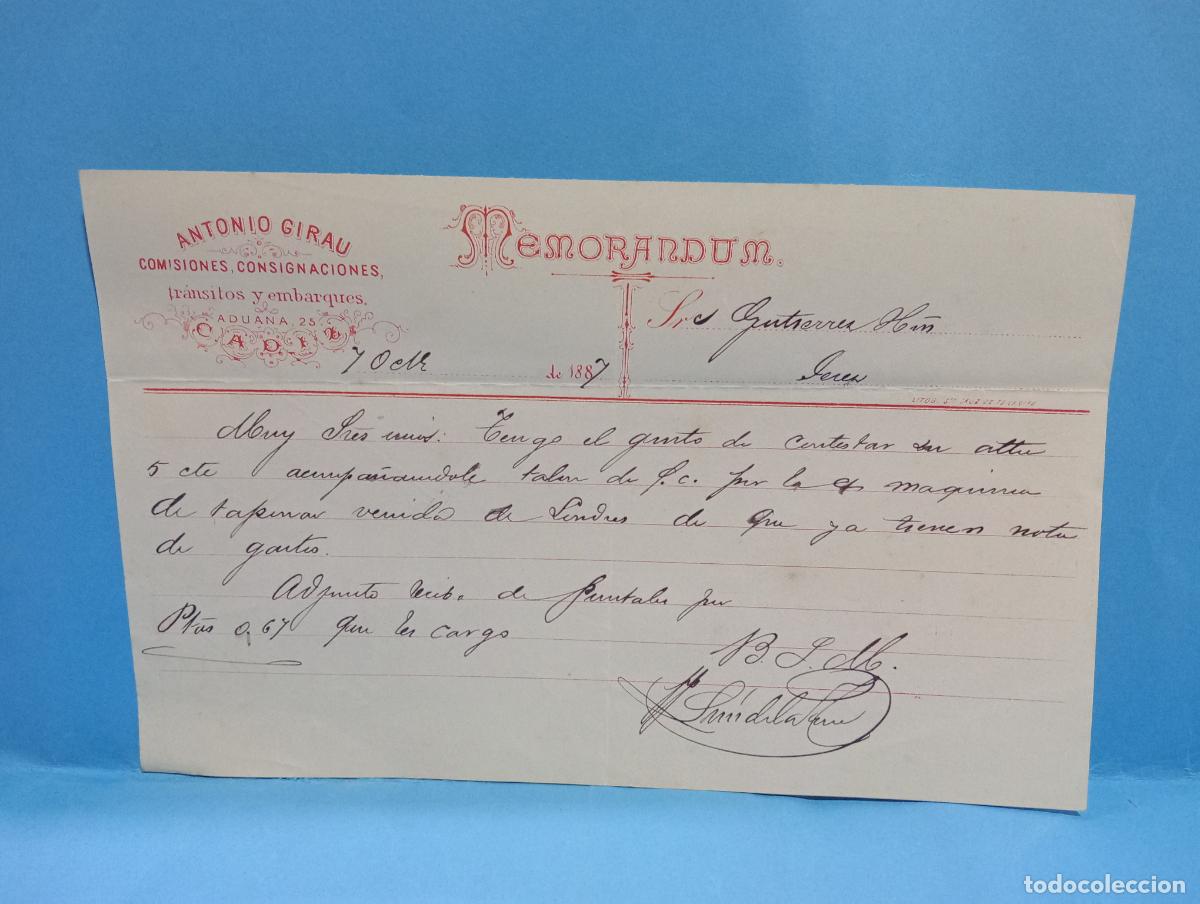 ANTONIO GIRAU
COMISIONES, CONSIGNACIONES,
tránsitos y embarques.
ADUANA, 25
CADIZ
MEMORANDUM.
Srs Gutierrez Hnos
7 Octe de 1887
Jerez
LITOG. STA CRUZ DE TENERIFE
Muy Sres mios: Tengo el gusto de contestar su atta
5 cte acompañandole talon de f.c. por la maquina
de taponar venida de Londres de que ya tienen nota
de gastos.
Adjunto recibo de Puntales por
Ptas 0,67 que les cargo
B. S. M.
todocoleccion